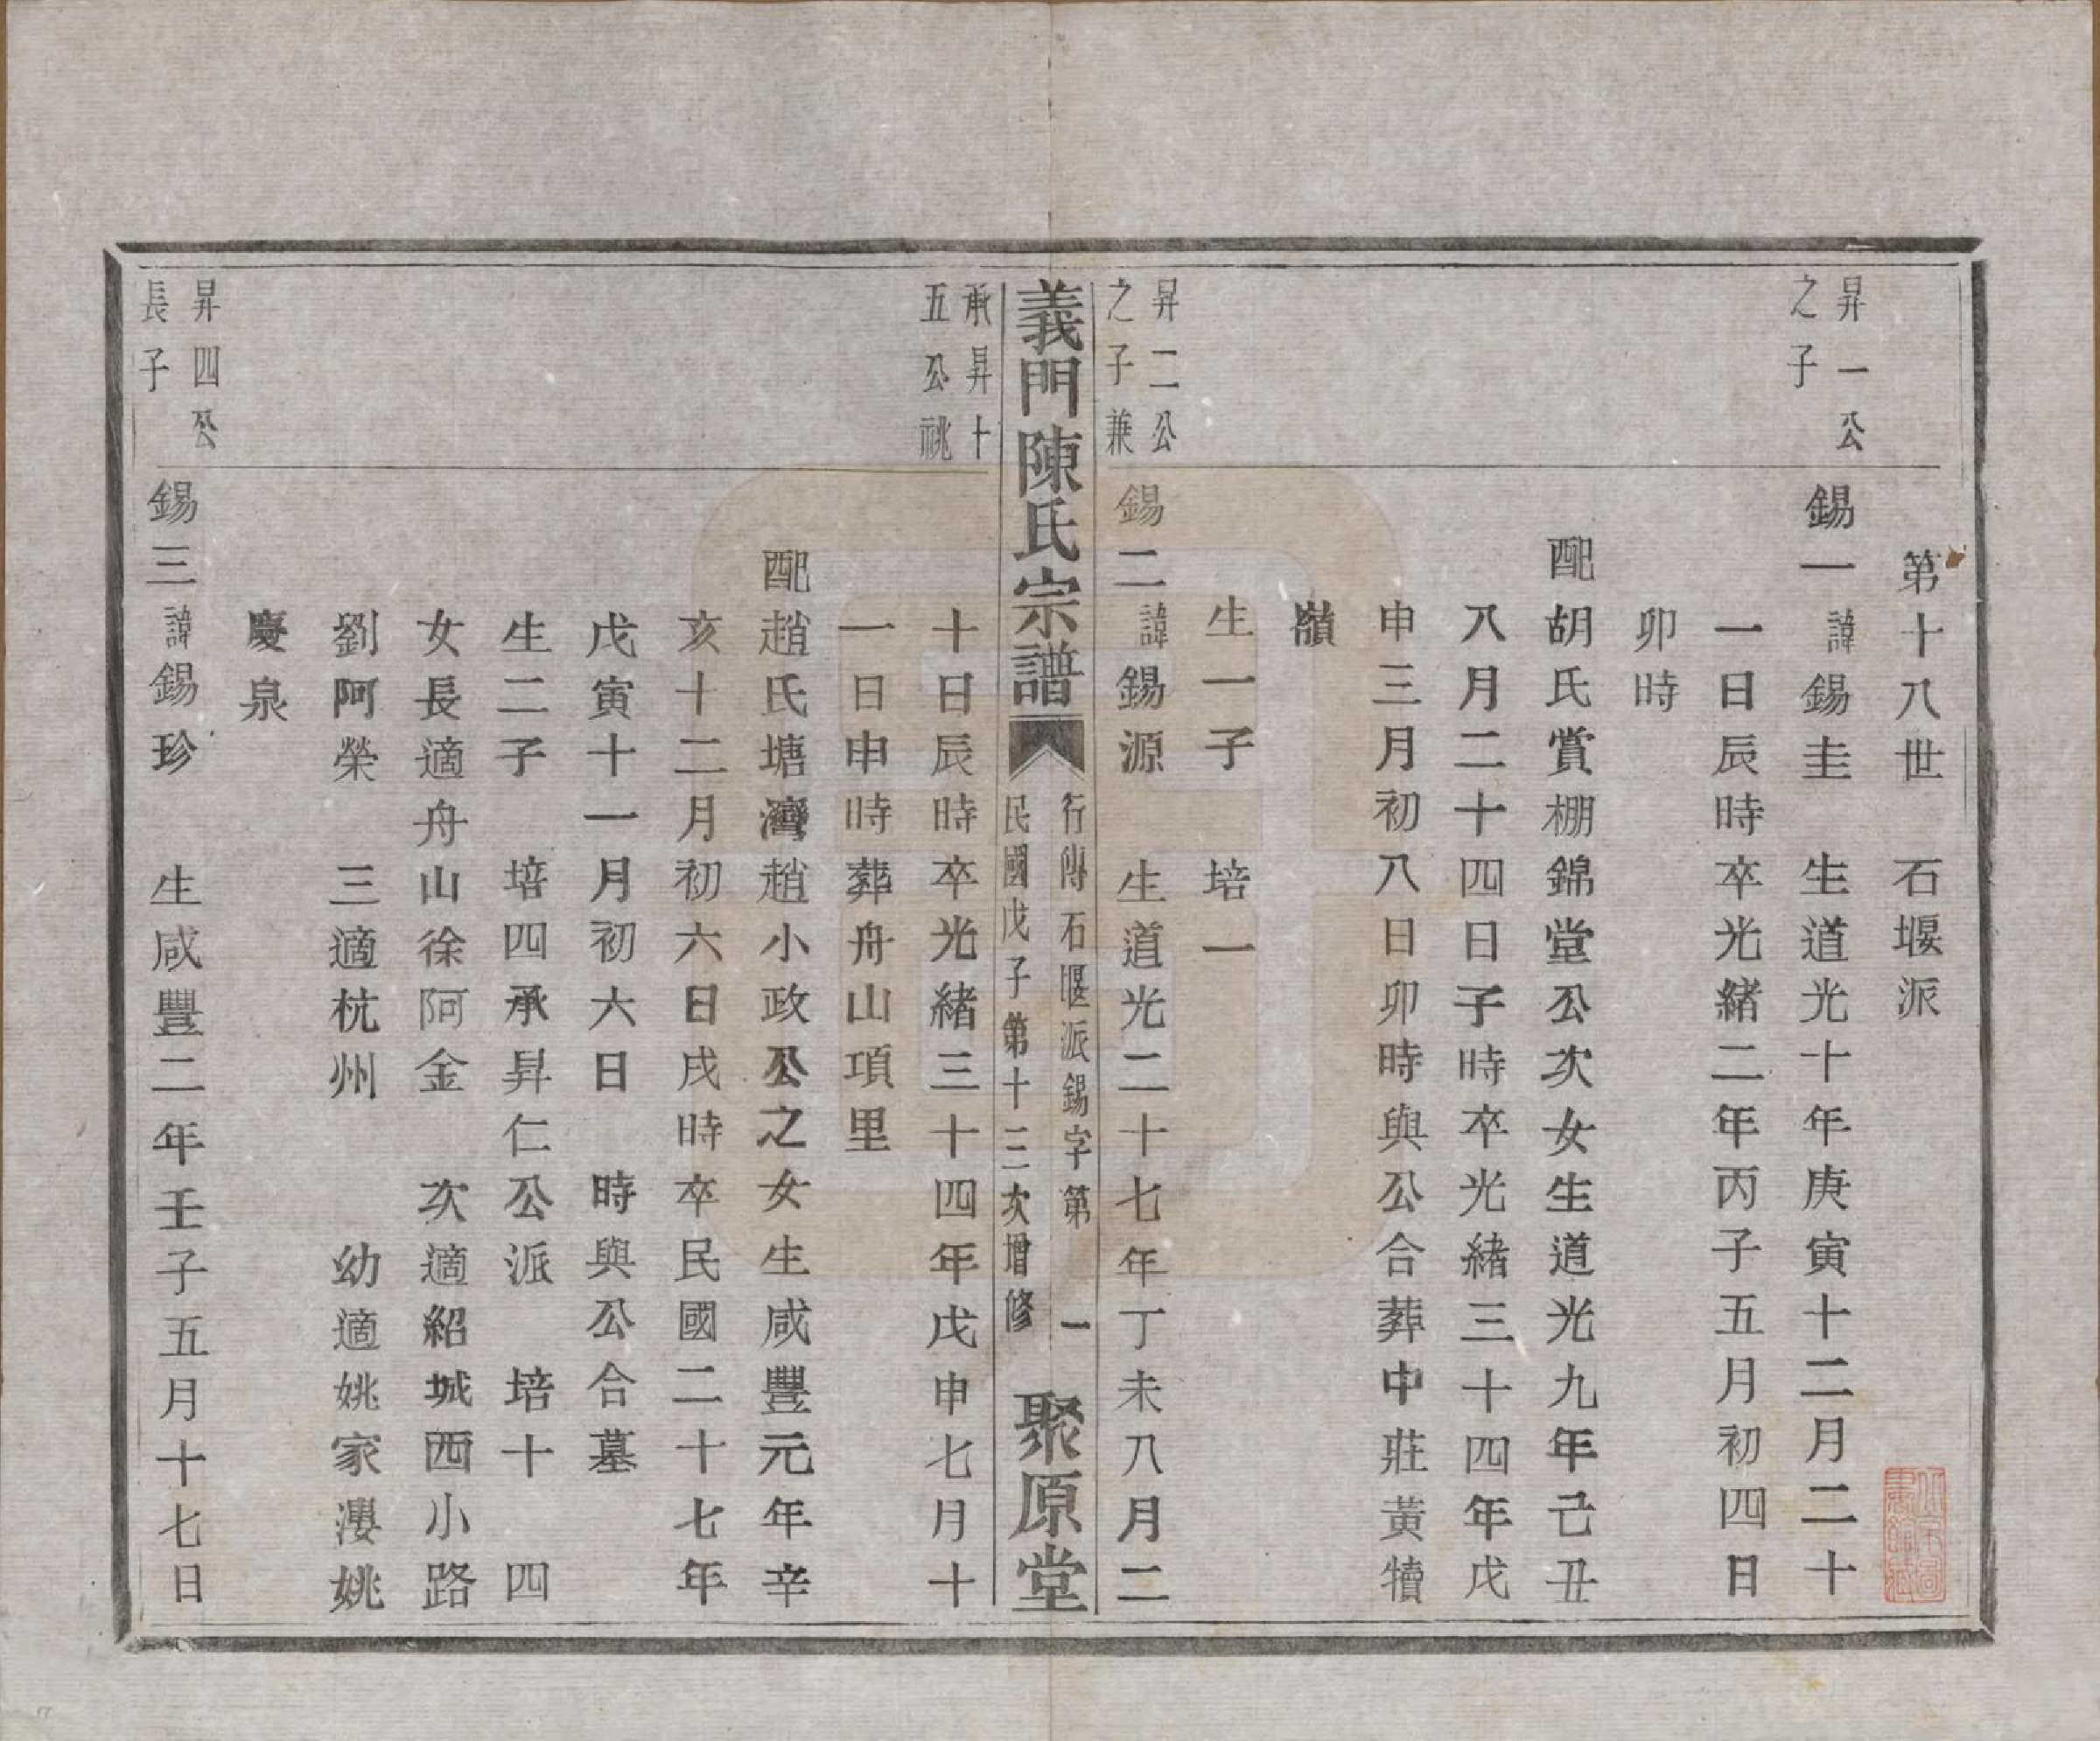 第十八世　石堰派
昇一公
之子
錫一諱錫圭　生道光十年庚寅十二月二十
一日辰時卒光緒二年丙子五月初四日
卯時
配胡氏賞棚錦堂公次女生道光九年己丑
八月二十四日子時卒光緒三十四年戊
申三月初八日卯時與公合葬中莊黃犢
嶺
生一子　培一
昇二公
之子兼
錫二諱錫源　生道光二十七年丁未八月二
義門陳氏宗譜
行傳石堰派錫字第　一
民國戊子第十三次增修
聚原堂
承昇十
五公祧
十日辰時卒光緒三十四年戊申七月十
一日申時葬舟山項里
配趙氏塘灣趙小政公之女生咸豐元年辛
亥十二月初六日戌時卒民國二十七年
戊寅十一月初六日　時與公合墓
生二子　培四承昇仁公派　培十　四
女長適舟山徐阿金　次適紹城西小路
劉阿榮　三適杭州　　幼適姚家漊姚
慶泉
昇四公
長子
錫三諱錫珍　生咸豐二年壬子五月十七日